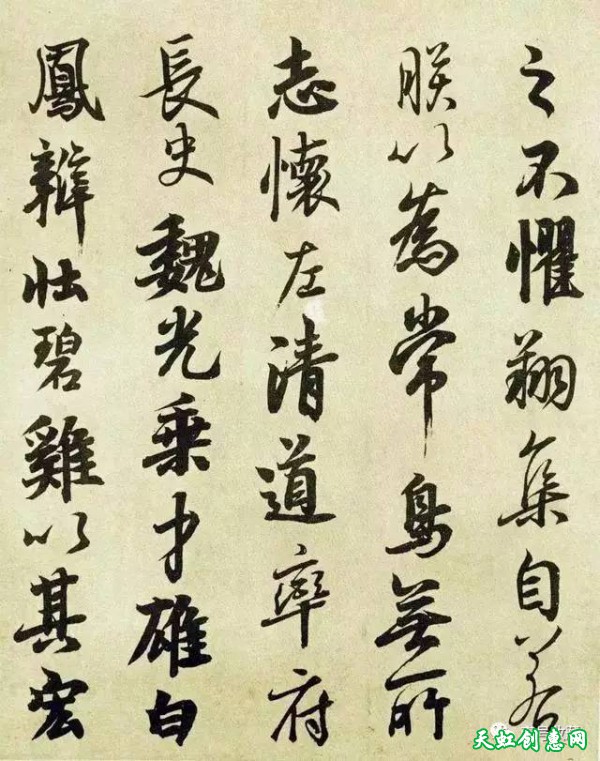 之不懼翔集自若
朕以為常鳥無所
志懷左清道率府
長史魏光乘才雄白
鳳辯壯碧雞以其宏
天虹创惠网